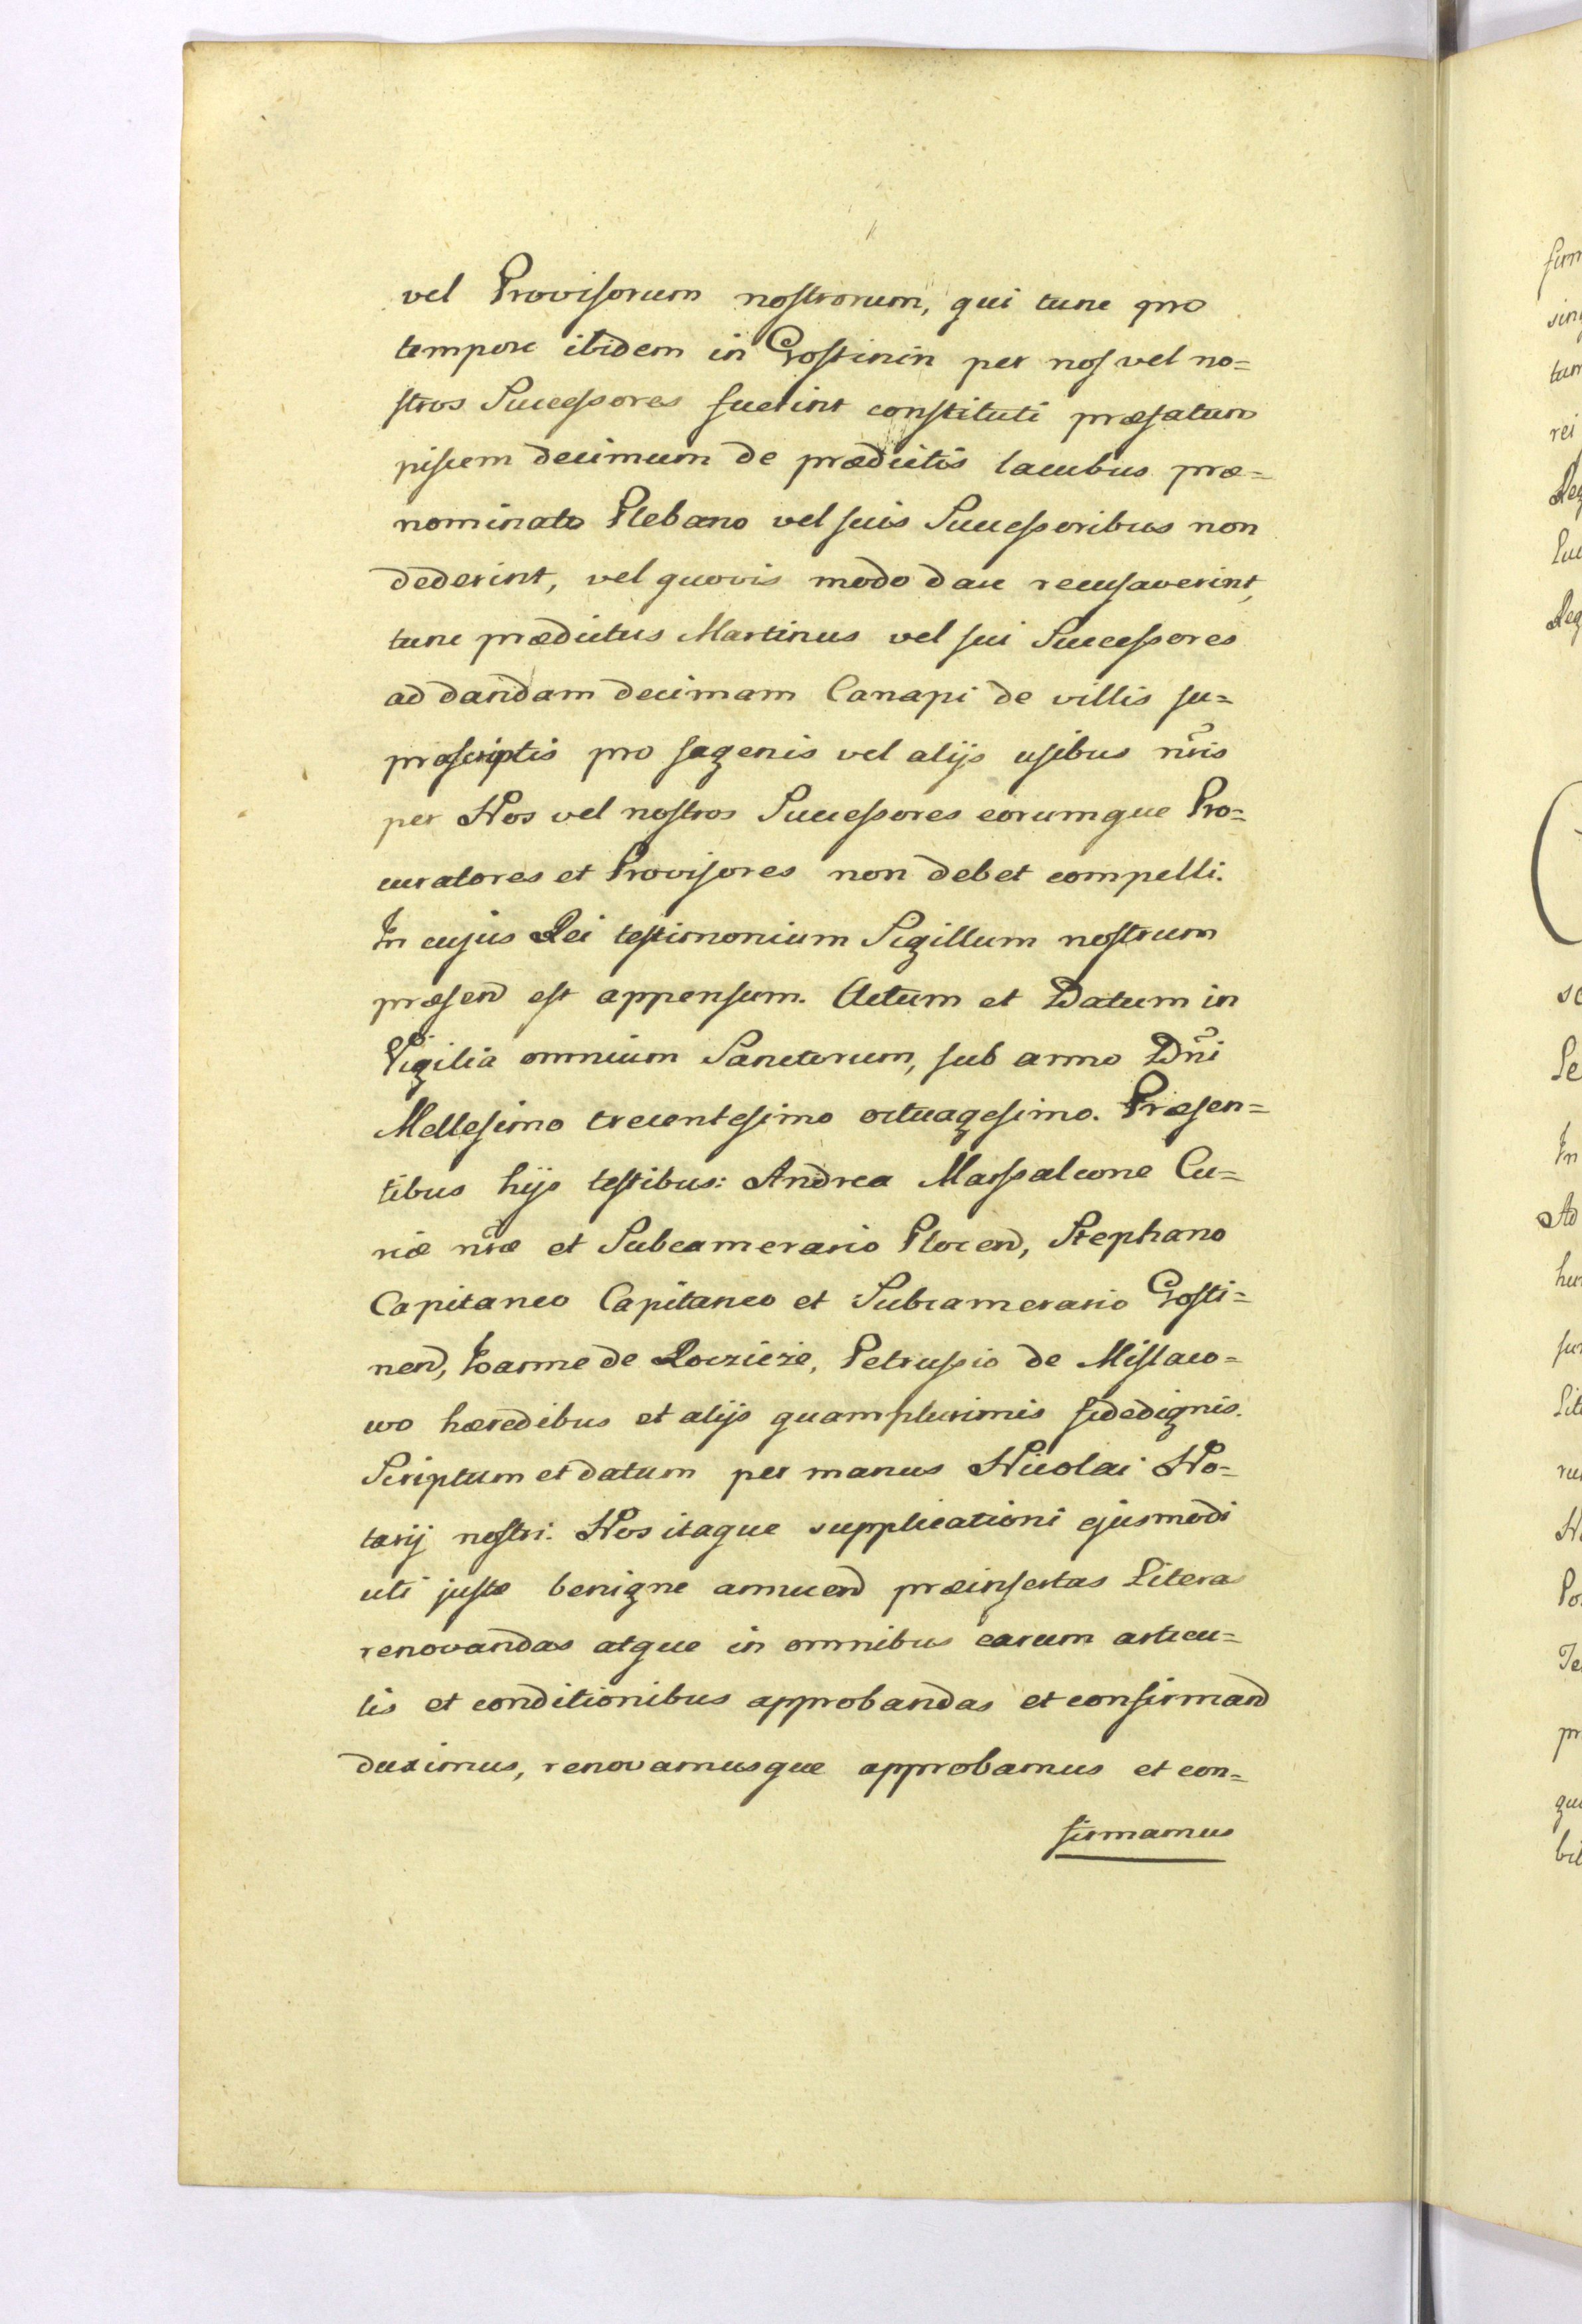 vel Provisorum nostrorum, qui tunc pro
tempore ibidem in Gostinin per nos vel no=
stros Successores fuerint constituti præfatum
piscem decimum de prædictis lacubus præ=
nominato Plebano vel suis Successoribus non
dederint, vel quovis modo dare recusaverint,
tunc prædictus Martinus vel sui Successores
ad dandam decimam Canapi de villis su=
prascriptis pro sagenis vel alijs usibus nr̃is
per Nos vel nostros Successores eorumque Pro=
curatores et Provisores non debet compelli.
In cujus Rei testimonium Sigillum nostrum
præsend est appensum. Actum et Datum in
Vigilia omnium Sanctorum, sub anno Dñi
Mellesimo trecentesimo octuagesimo. Præsen=
tibus hijs testibus: Andrea Marssalcone Cu=
riæ nr̃æ et Subcamerario Plocend, Stephano
Capitaneo Capitaneo et Subcamerario Gosti=
nend, Ioanne de Loczicze, Petrussio de Mislaco=
wo hæredibus et alijs quamplurimis fidedignis.
Scriptum et datum per manus Nicolai No=
tarij nostri. Nos itaque supplicationi ejusmodi
uti justæ benigne annuend præinsertas Litera
renovandas atque in omnibus earum articu=
lis et conditionibus approbandas et confirmand
duximus, renovamusque approbamus et con=
firmamus
firm
sing
tum
rei
Reg
Luc
Reg
sc
Se
In
Ad
hu
fu
Lit
ru
N
Po
Te
pr
qui
bil